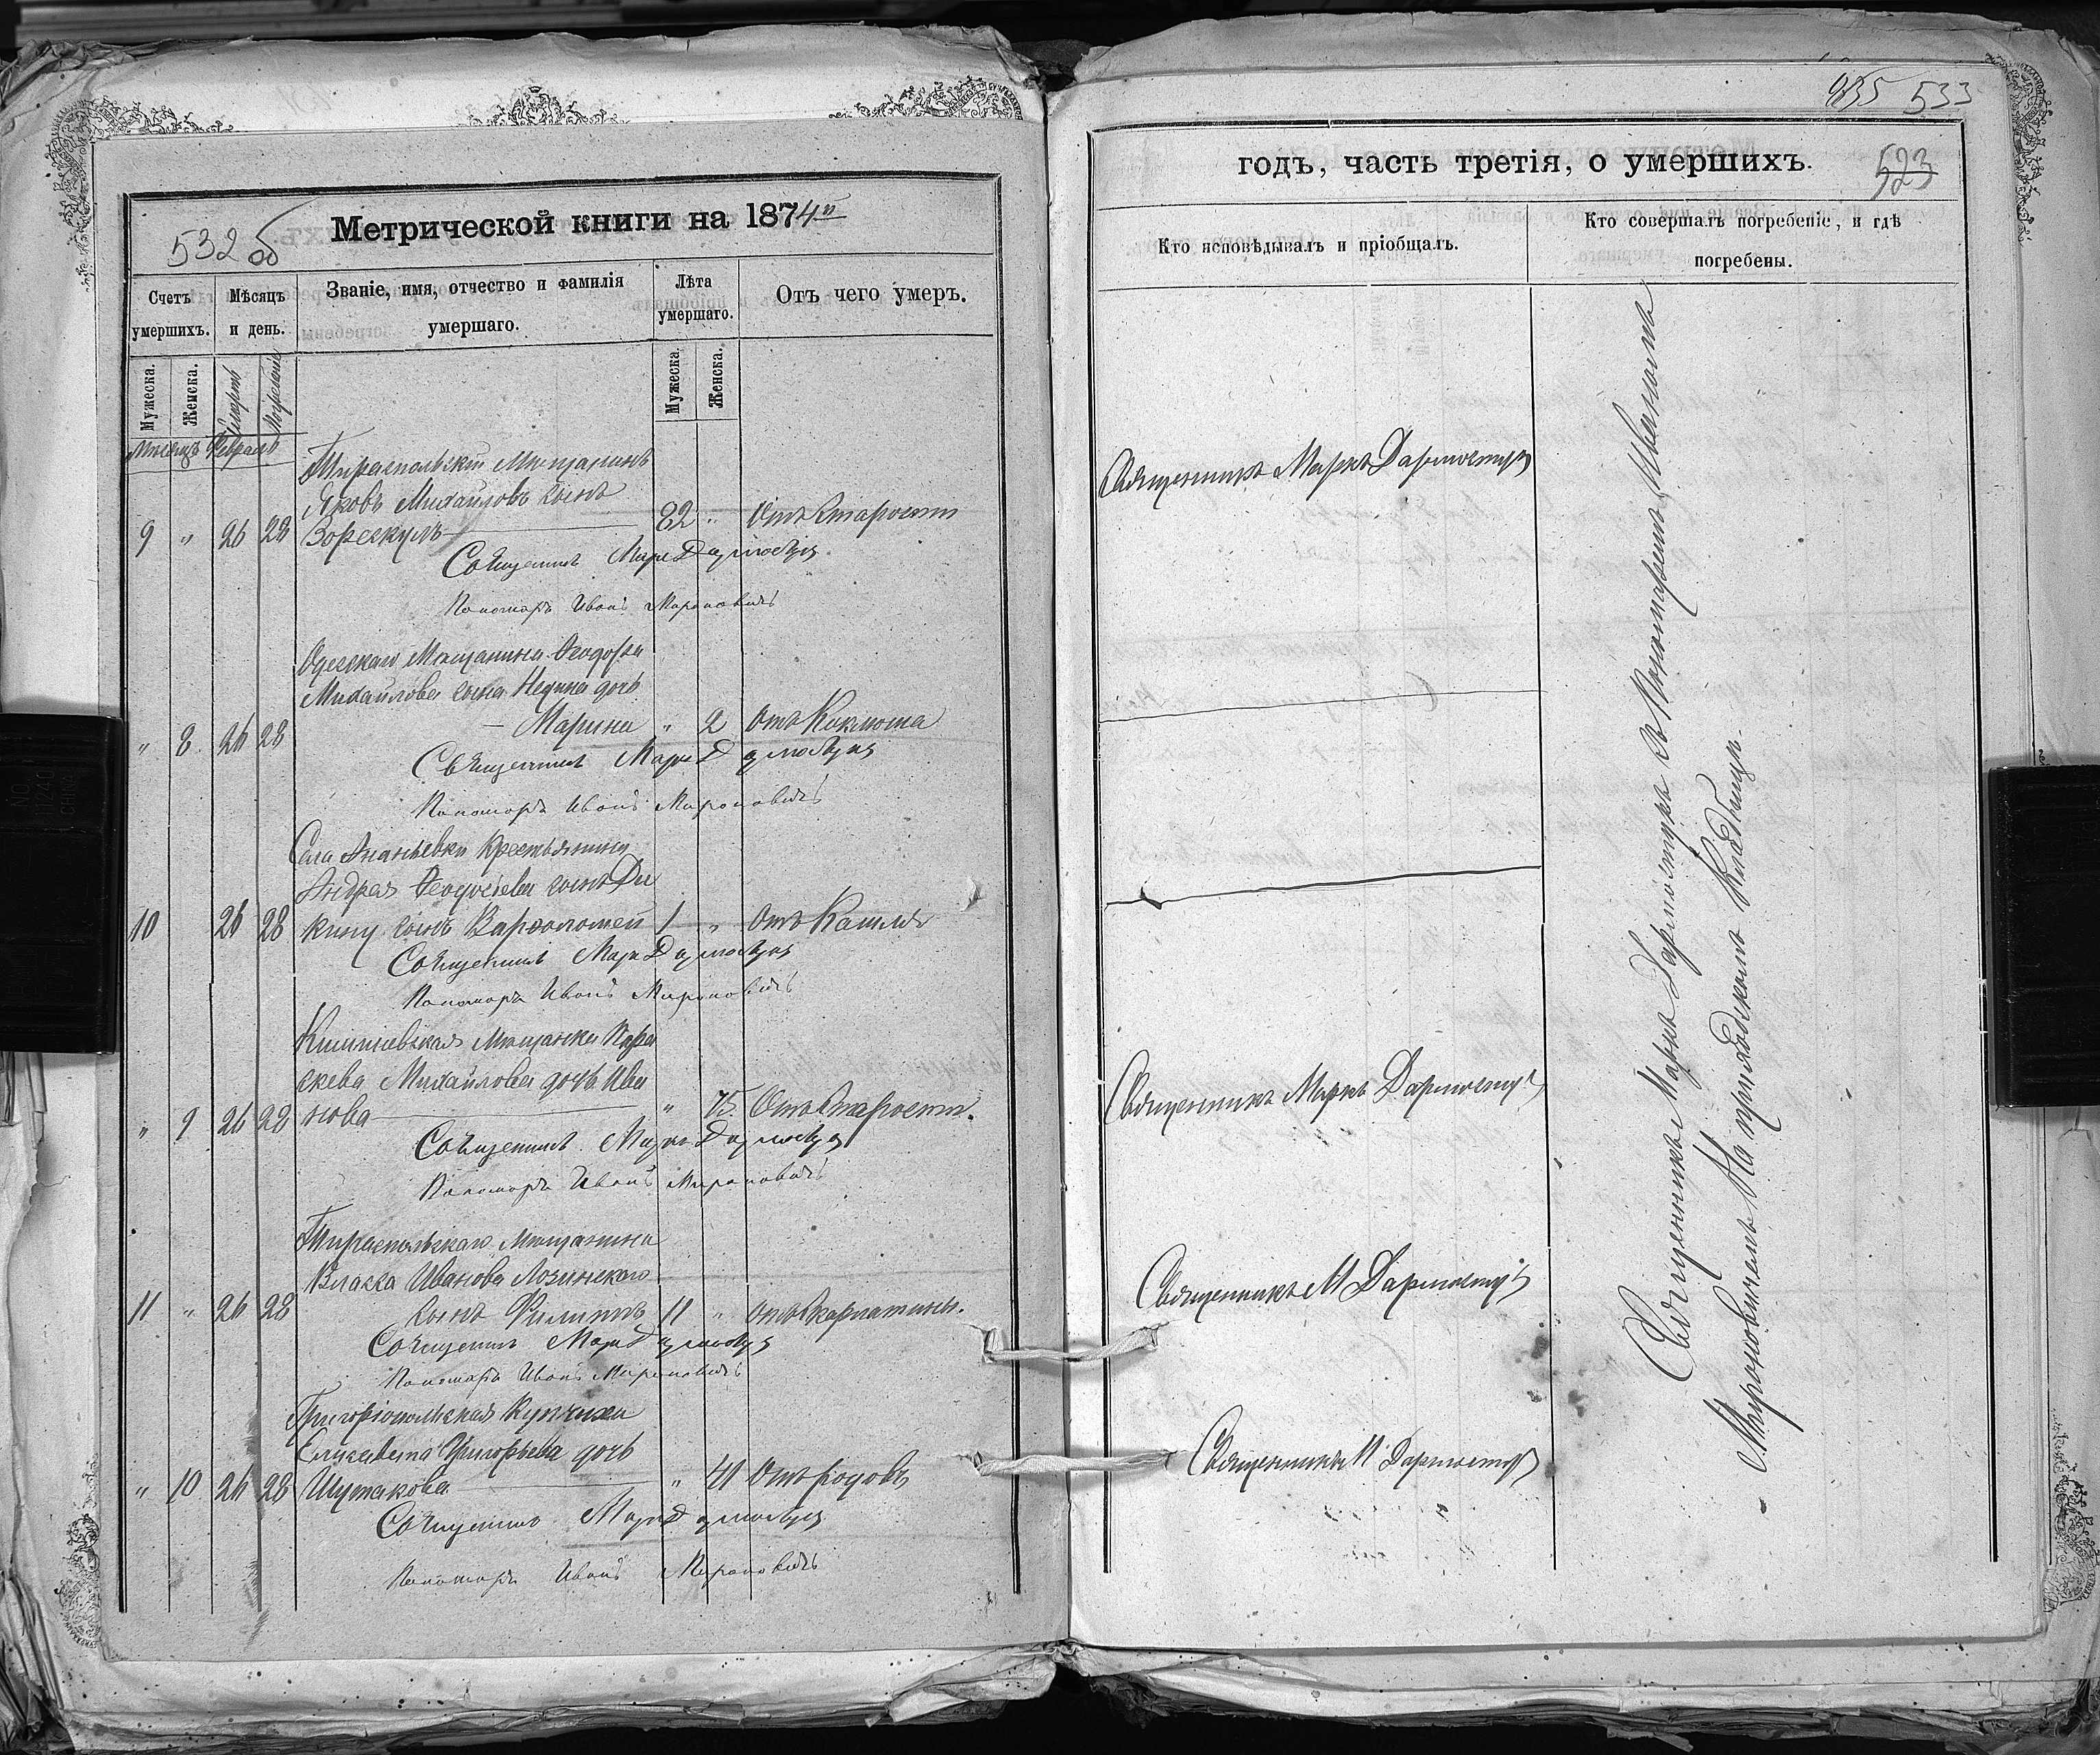 532 об
Метрической книги на 1874й
Счетъ умершихъ.
Мѣсяцъ и день.
Званіе, имя, отчество и фамилія умершаго.
Лѣта умершаго.
Отъ чего умеръ.
Мужеска.
Женска.
Смерть
Погребеніе
Мужеска
Женска.
Мѣсяцъ Февраль
Тираспольскій Мѣщанинъ
Яковъ Михайловъ сынъ
9 " 26 28 82 " Отъ Старости
Священникъ Маркъ
Пономарь Иванъ Мироновичъ
Одесскаго Мѣщанина Ѳеодора
Михайлова сына дочь
" 8 26 28 Марина " 2 Отъ Коклюша
Священникъ Маркъ
Пономарь Иванъ Мироновичъ
Села Ананьевки Крестьянина
Андрея сына
10 26 28 сынъ Варѳоломей 1 " Отъ Кашля
Священникъ Маркъ
Пономарь Иванъ Мироновичъ
Кишиневская Мѣщанка Пара
скева Михайлова дочь Ива
" 9 26 28 нова " 75. Отъ Старости.
Священникъ Маркъ
Пономарь Иванъ Мироновичъ
Тираспольскаго Мѣщанина
Власа Иванова Лозинскаго
11 " 26 28 сынъ Филиппъ 11 " отъ Скарлатины.
Священникъ Маркъ
Пономарь Иванъ Мироновичъ
Григоріопольская Купчиха
Елисавета Григорьева дочь
" 10 26 28 Шутакова " 41 Отъ родовъ
Священникъ Маркъ
Пономарь Иванъ Мироновичъ
533
годъ, часть третія, о умершихъ.
523
Кто исповѣдывалъ и пріобщалъ.
Кто совершалъ погребеніе, и гдѣ погребены.
Священникъ Маркъ Дармостукъ
Священникъ Маркъ Дармостукъ
Священникъ М Дармостукъ
Священникъ М Дармостукъ
Священникъ Маркъ Дармостукъ съ Пономаремъ Иваномъ
Мироновичемъ На приходскомъ Кладбищѣ.